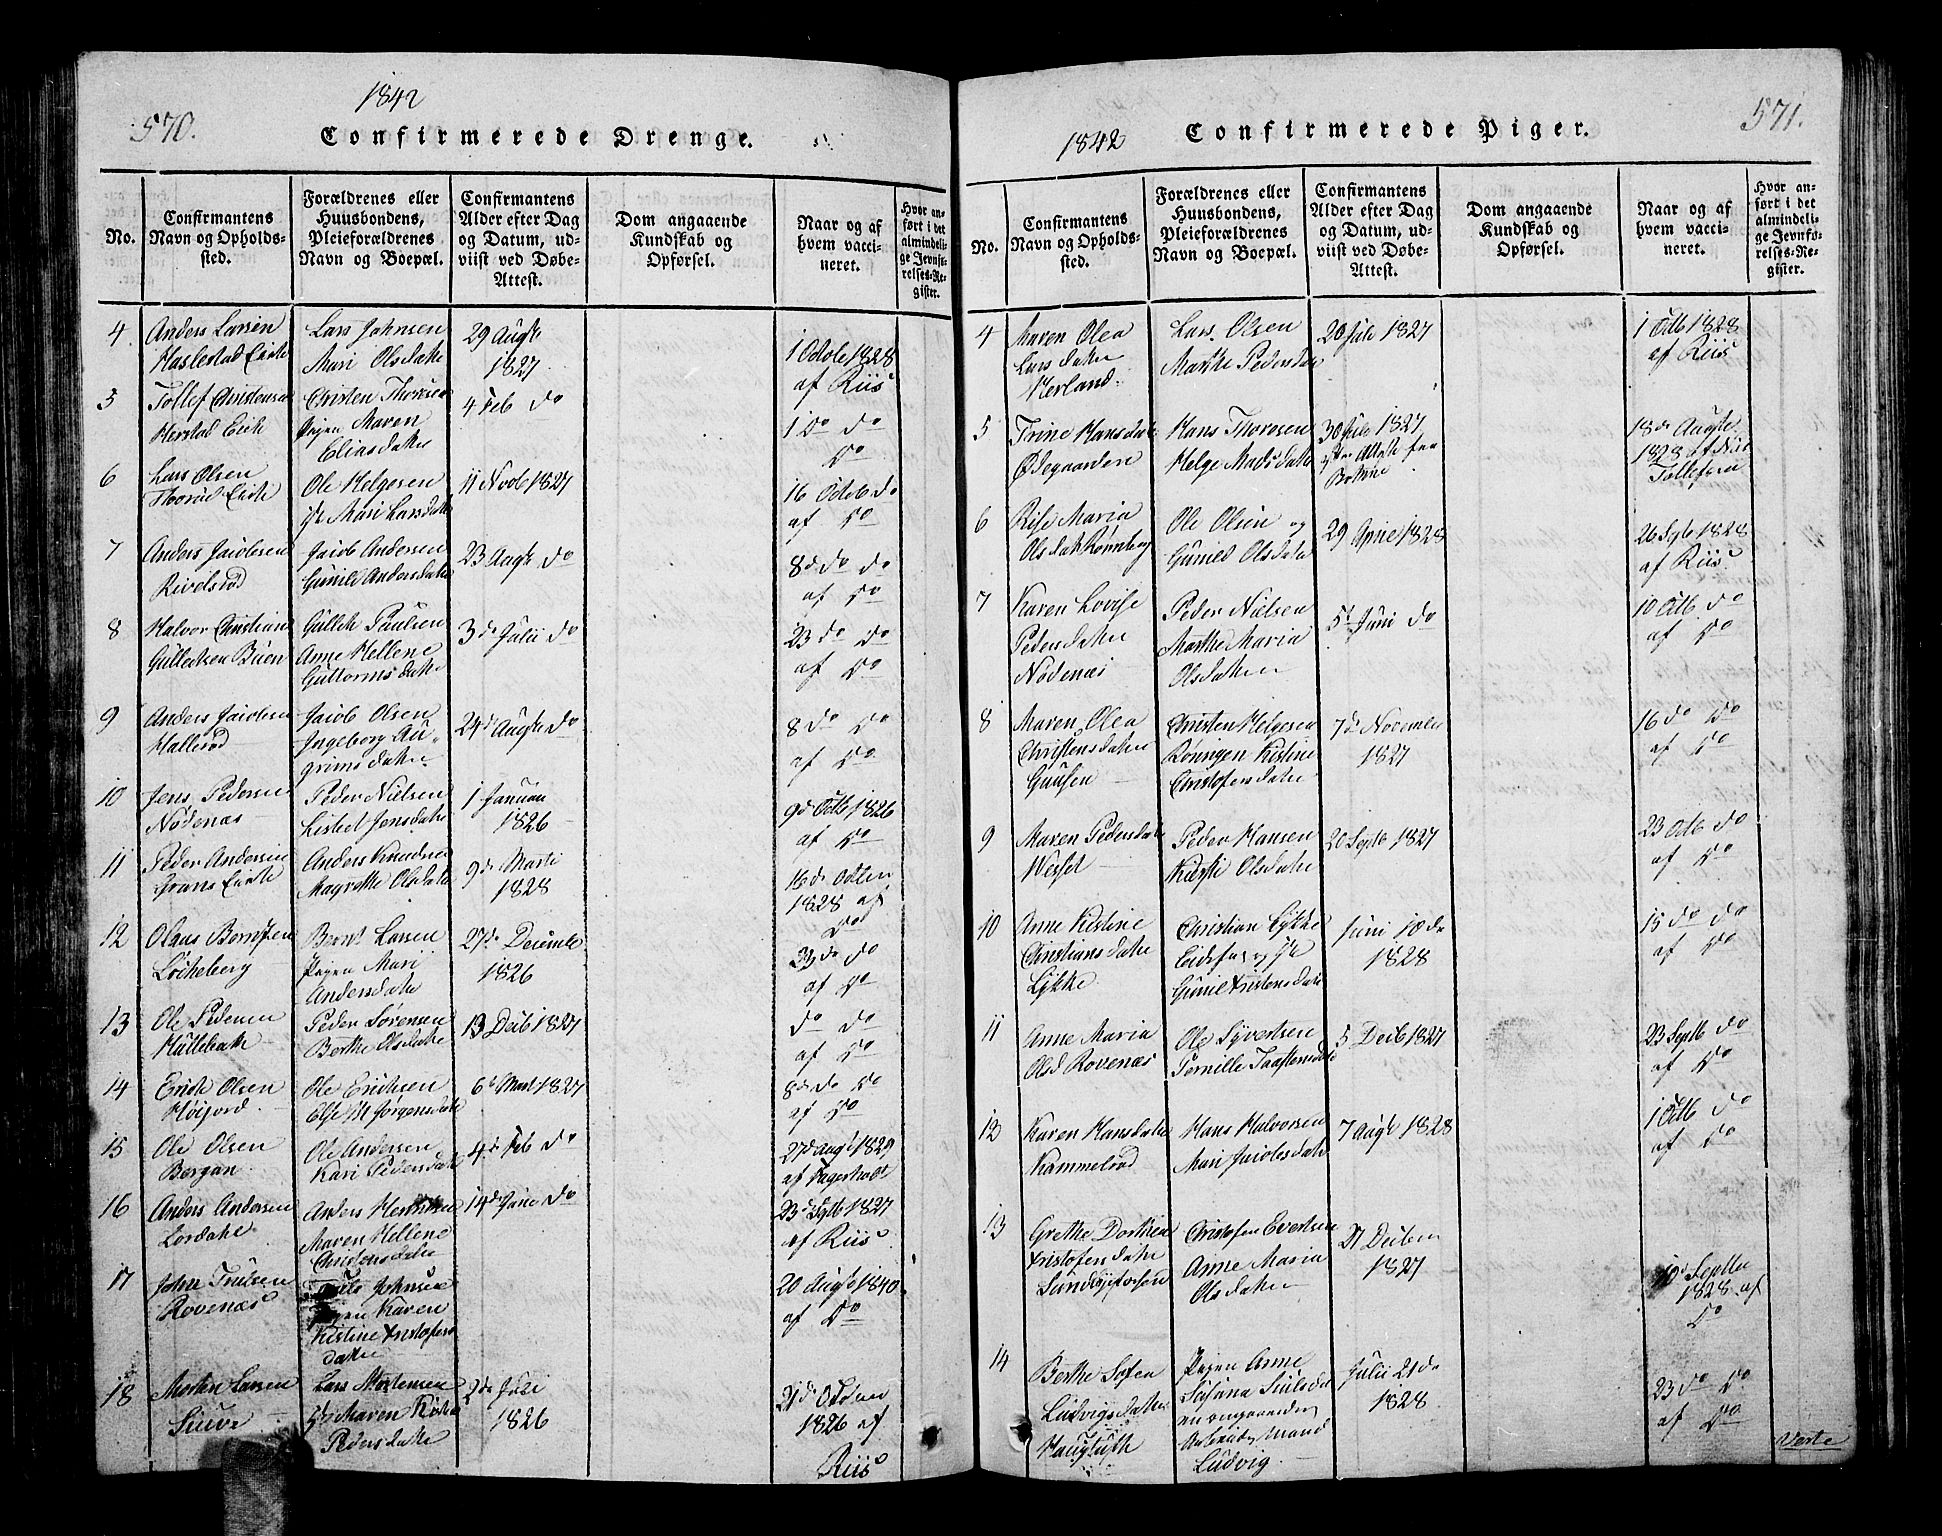 570.
1842
Confirmerede Drenge.
No.
Confirmantens
Navn og Opholds-
sted.
Forældrenes eller
Huusbondens,
Pleieforældrenes
Navn og Boepæl.
Confirmantens
Alder efter Dag
og Datum, ud-
viist ved Døbe-
Attest.
Dom angaaende
Kundskab og
Opførsel.
Naar og af
hvem vacci-
neret.
Hvor an-
ført i det
almindeli-
ge Jevnfø-
relses-Re-
gister.
4
Anders Larsen
Haslestad Eide
Lars Johnsen
Mari Olsdatter
29 Augt
1827
1 Octob 1828
af Riis
5
Tollef Christensen
Herstad
Christen
Pigen Maren
Eliasdatter
4 Feb do
1 do do
do
6
Lars Olsen
Ole Helgesen
Mari Larsdatter
11 Novb 1827
16 Octob do
af do
7
Anders Jacobsen
Rivelsrød
Jacob Andersen
Gunild Andersdatter
23 Augt do
8d do do
af do
8
Halvor Christian
Gulleksen Buen
Gullek Paulsen
Anne Hellene
Guttormsdatter
3de Julii do
23 do do
af do
9
Anders Jacobsen
Hallerød
Jacob Olsen
Ingeborg Au-
grimsdatter
24d Augt do
8 do do
af do
10
Jens Pedersen
Nødenæs
Peder Nielsen
Lisbet Jensdatter
1 Januari
1826
9d Octb 1826
af do
11
Peder Andersen
Anders Knudsen
Magrethe Olsdatter
9de Marti
1828
16de Octbr
1828 af
do
12
Olaus Berntsen
Løcheberg
Bernt Larsen
Pigen Mari
Andersdatter
27de Decembr
1826
do do
af do
13
Ole Pedersen
Hullebak
Peder Sørensen
Berthe Olsdatter
13 Decb 1827
do do
af do
14
Erich Olsen
Høijord
Ole Erichsen
Else M Jørgensdatter
6t Mart 1827
8de do
af do
15
Ole Olsen
Bergan
Ole Andersen
Kari Pedersdatter
4de Feb do
27d Augt 1829
af Fagerholt
16
Anders Andersen
Lørdahl
Anders
Maren Hellene
Christensdatter
14de Juni do
23d Septb 1827
af Riis
17
John Trulsen
Rovenæs
Truls Johnsen
Pigen Karen
Kistine Xristofers-
datter
20 Augt 1840
af do
18
Morten Larsen
Lars Mortensen
Maren
Pedersdatter
2de Juli
1826
21de Octbr
1826 af
Riis
571.
1842
Confirmerede Piger.
No.
Confirmantens
Navn og Opholds-
sted.
Forældrenes eller
Huusbondens,
Pleieforældrenes
Navn og Boepæl.
Confirmantens
Alder efter Dag
og Datum, ud-
viist ved Døbe-
Attest.
Dom angaaende
Kundskab og
Opførsel.
Naar og af
hvem vacci-
neret.
Hvor an-
ført i det
almindeli-
ge Jevnfø-
relses-Re-
gister.
4
Maren Olea
Larsdatter
Herland
Lars Olsen
Marthe Pedersdatter
20 Juli 1827
1 Octb 1828
af Riis
5
Trine Hansdatter
Ødegaarden
Hans Thoresen
Helge Madsdatter
30 Juli 1827
Attest fra
Botne
18de Augt
1828 af
Tollefsen
6
Rise Maria
Olsdatter Rønneberg
Ole Olsen og
Guniel Olsdatter
29 April 1828
26 Septb 1828
af Riis
7
Karen Lovise
Pedersdatter
Nødenæs
Peder Nielsen
Marthe Maria
Olsdatter
5t Juni do
10 Octb do
af do
8
Maren Olea
Christensdatter
Christen Helgesen
Rønningen Kistine
Christofersdatter
7de November
1827
16 do do
af do
9
Maren Pedersdatter
Peder Hansen
Kirsti Olsdatter
20 Septb 1827
23 Octb do
af do
10
Anne Kistine
Christiansdatter
Lykke
Christian Lykke
Guniel Xristensdatter
Juni 10de
1828
15 do do
af do
11
Anne Maria
Olsd Rovenæs
Ole Syvertsen
Pernille
5 Decb 1827
23 Septb do
af do
12
Karen Hansdatter
Kammelrød
Hans Halvorsen
Mari Jacobsdatter
7 Augt 1828
1 Octb do
af do
13
Grethe Dorthea
Xristofersdatter
Christofer Evertsen
Anne Maria
Olsdatter
21 Decbr
1827
10de Septbr
1828 af
do
14
Berthe Sofia
Ludvigsdatter
Pigen Anne
Susana
Mand
Ludvig
Julii 21de
1828
23 do do
af do
Verte